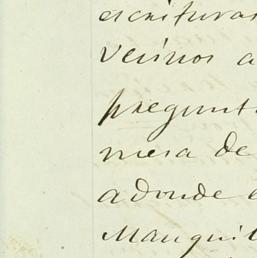 escrituras
vecinos a
pregunt
mesa de
adonde e
Manquil